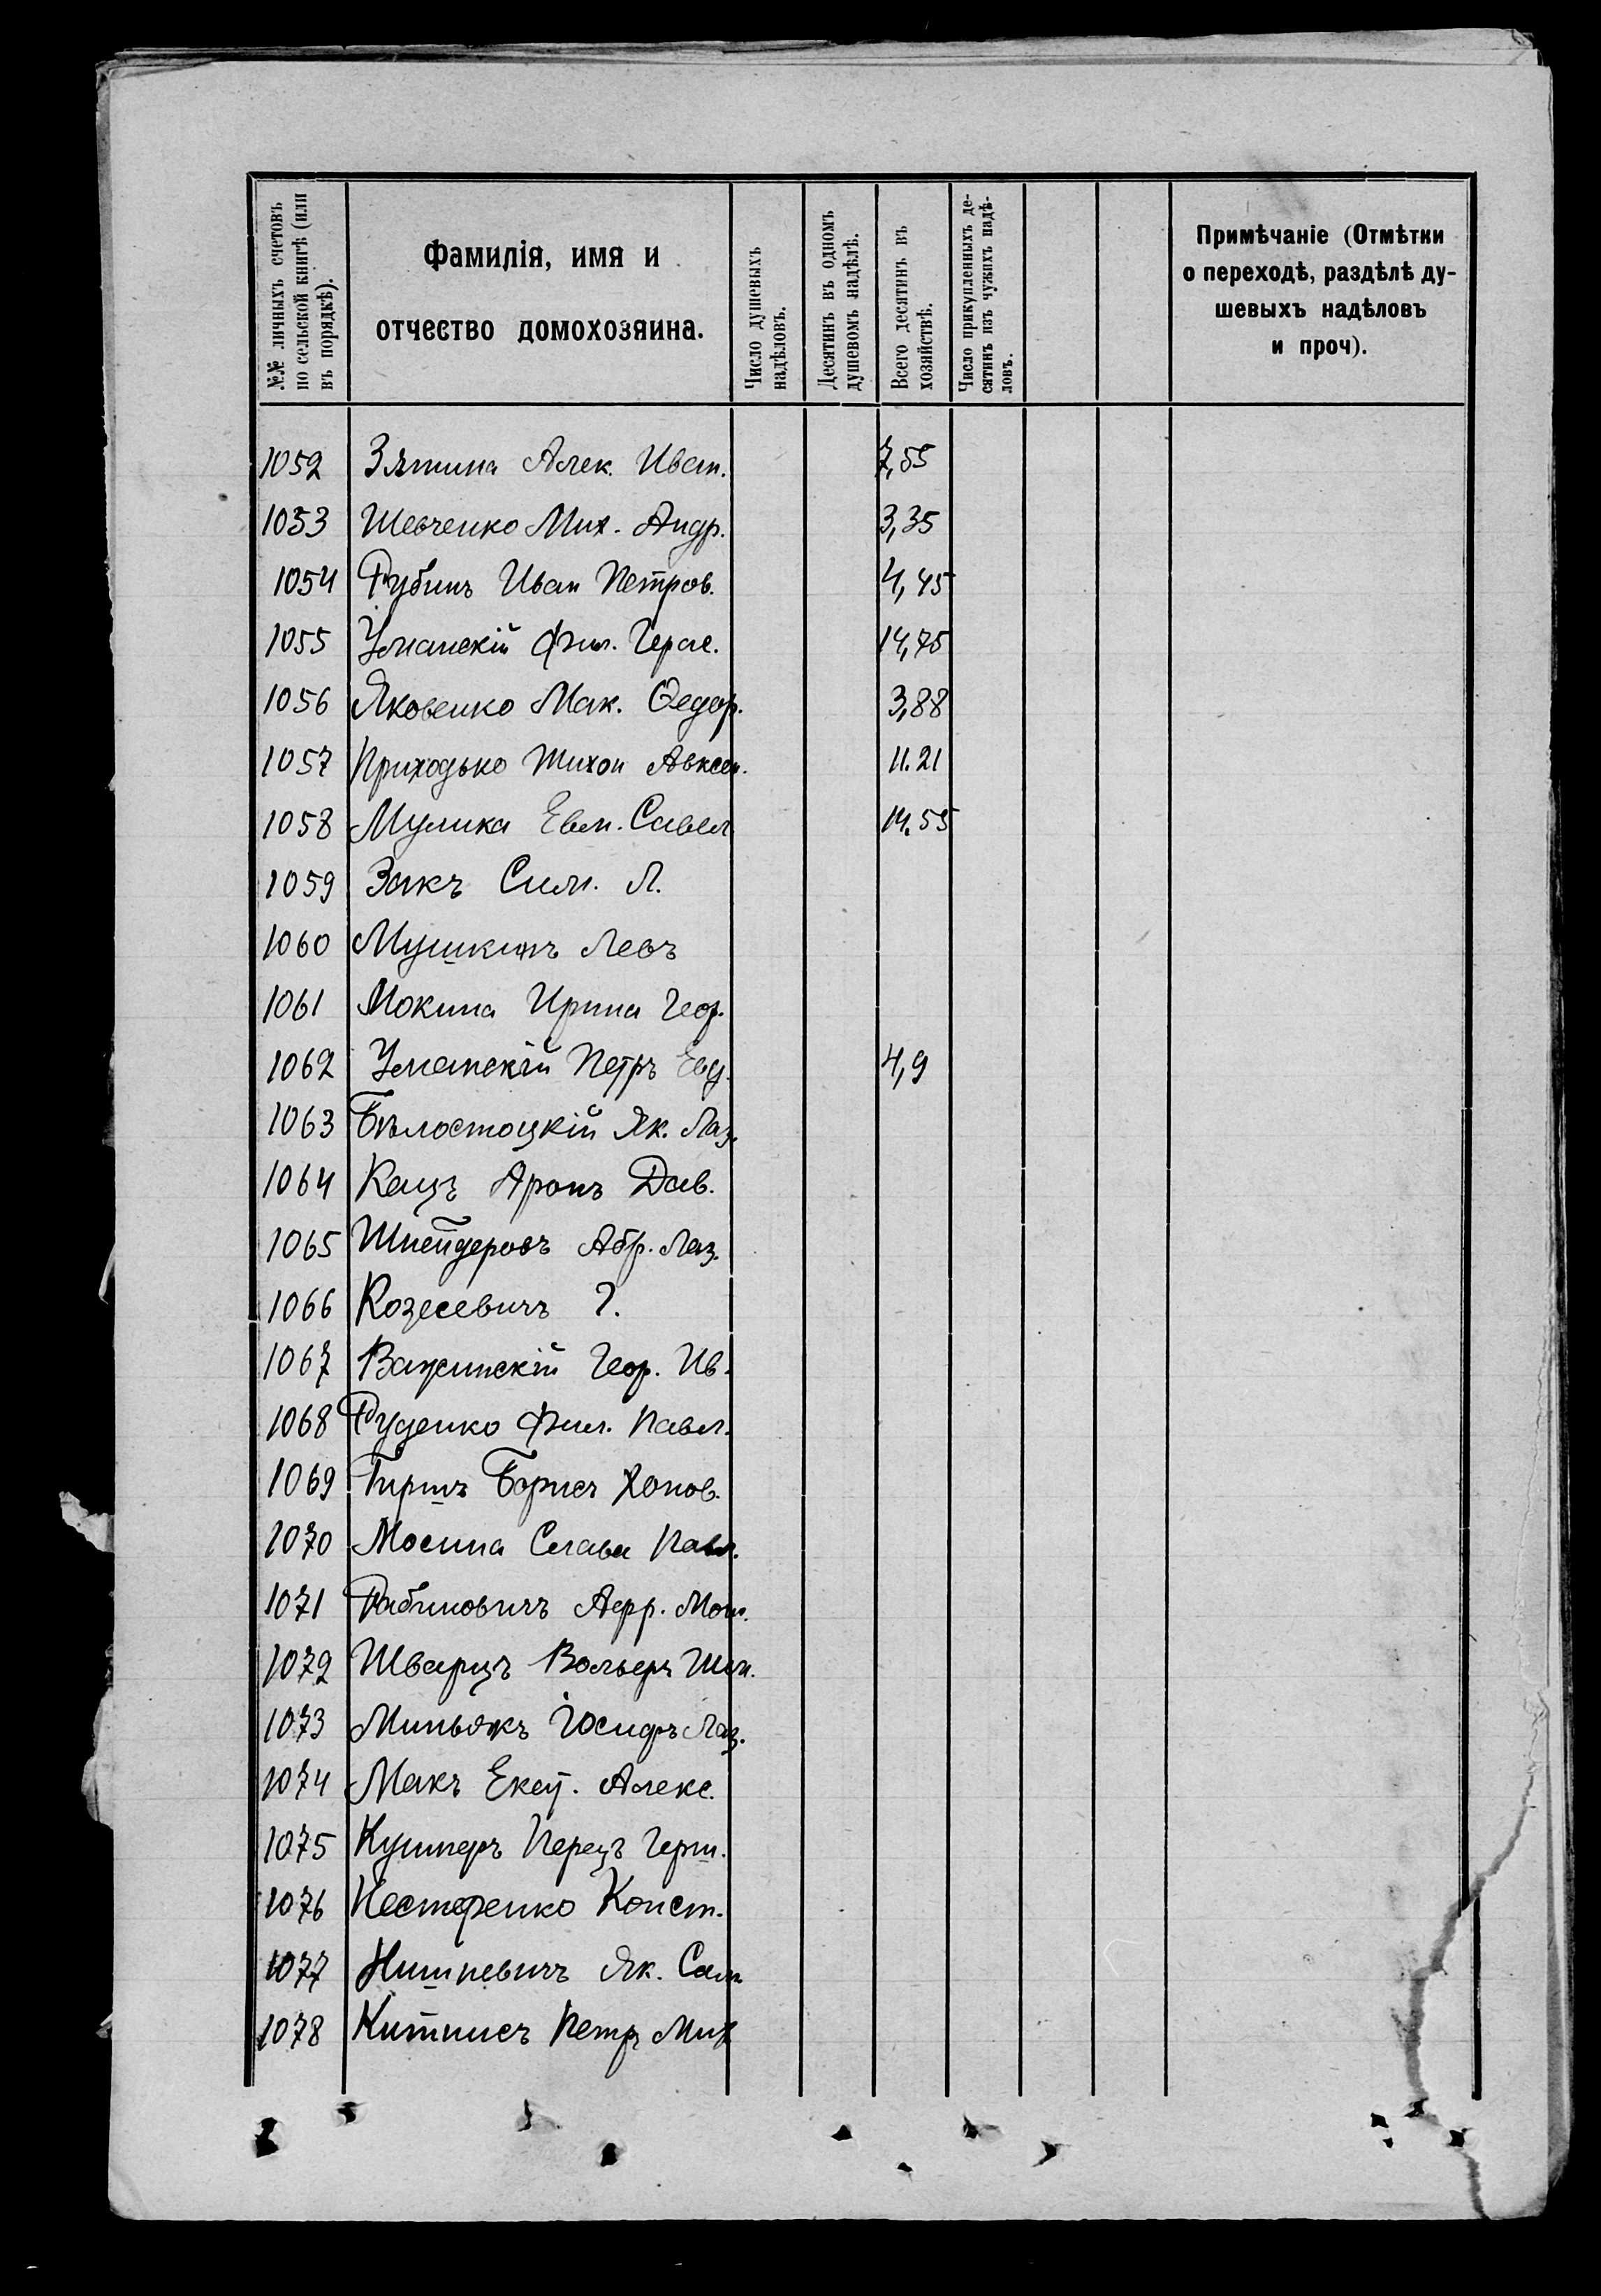 №№ личныхъ счетовъ по сельской книгѣ (или въ порядкѣ).
Фамилія, имя и отчество домохозяина.
Число душевыхъ надѣловъ.
Десятинъ въ одномъ душевомъ надѣлѣ.
Всего десятинъ въ хозяйствѣ.
Число прикупленныхъ десятинъ изъ чужихъ надѣловъ.
Примѣчаніе (Отмѣтки о переходѣ, раздѣлѣ душевыхъ надѣловъ и проч).
1052 Зятина Алек. Иван. 7,55
1053 Шевченко Мих. Андр. 3,35
1054 Рубинъ Иван Петров. 4,45
1055 Уманскій Фил. Герас. 14,75
1056 Яковенко Мак. Ѳедор. 3,88
1057 Приходько Тихон Авксен. 11.21
1058 Мулика Евм. Савел. 14.55
1059 Закъ Сим. Л.
1060 Мушкинъ Левъ
1061 Мокина Ирина Геор.
1062 Уманскій Петръ Евд. 4,9
1063 Бѣлостоцкій Як. Лаз.
1064 Кацъ Аронъ Дав.
1065 Шнейдеровъ Абр. Лаз.
1066 Козесевичъ Г.
1067 Важинскій Геор. Ив.
1068 Руденко Фил. Павл.
1069 Гиршъ Борисъ Хонов.
1070 Мосина Слава Павл.
1071 Рабиновичъ Мош.
1072 Шварцъ Вольфъ
1073 Миньякъ Іосифъ Лаз.
1074 Макъ Екат. Алекс.
1075 Кушнеръ Перецъ Герш.
1076 Нестеренко Конст.
1077 Нишневичъ Як. Сам
1078 Китнисъ Петръ Мих